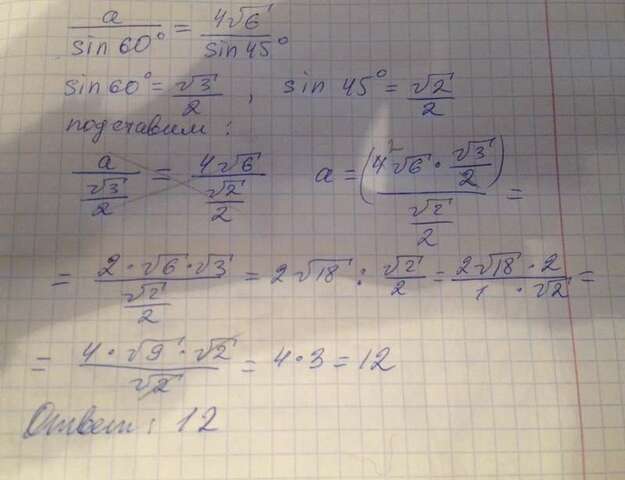 a/sin 60° = 4√6/sin 45°
sin 60° = √3/2 , sin 45° = √2/2
подставим:
a/(√3/2) = 4√6/(√2/2)   a = (4√6 · √3/2)/(√2/2) =
= (2 · √6 · √3)/(√2/2) = 2√18 : √2/2 = (2√18 · 2)/(1 · √2) =
= (4 · √9 · √2)/√2 = 4 · 3 = 12
Ответ: 12